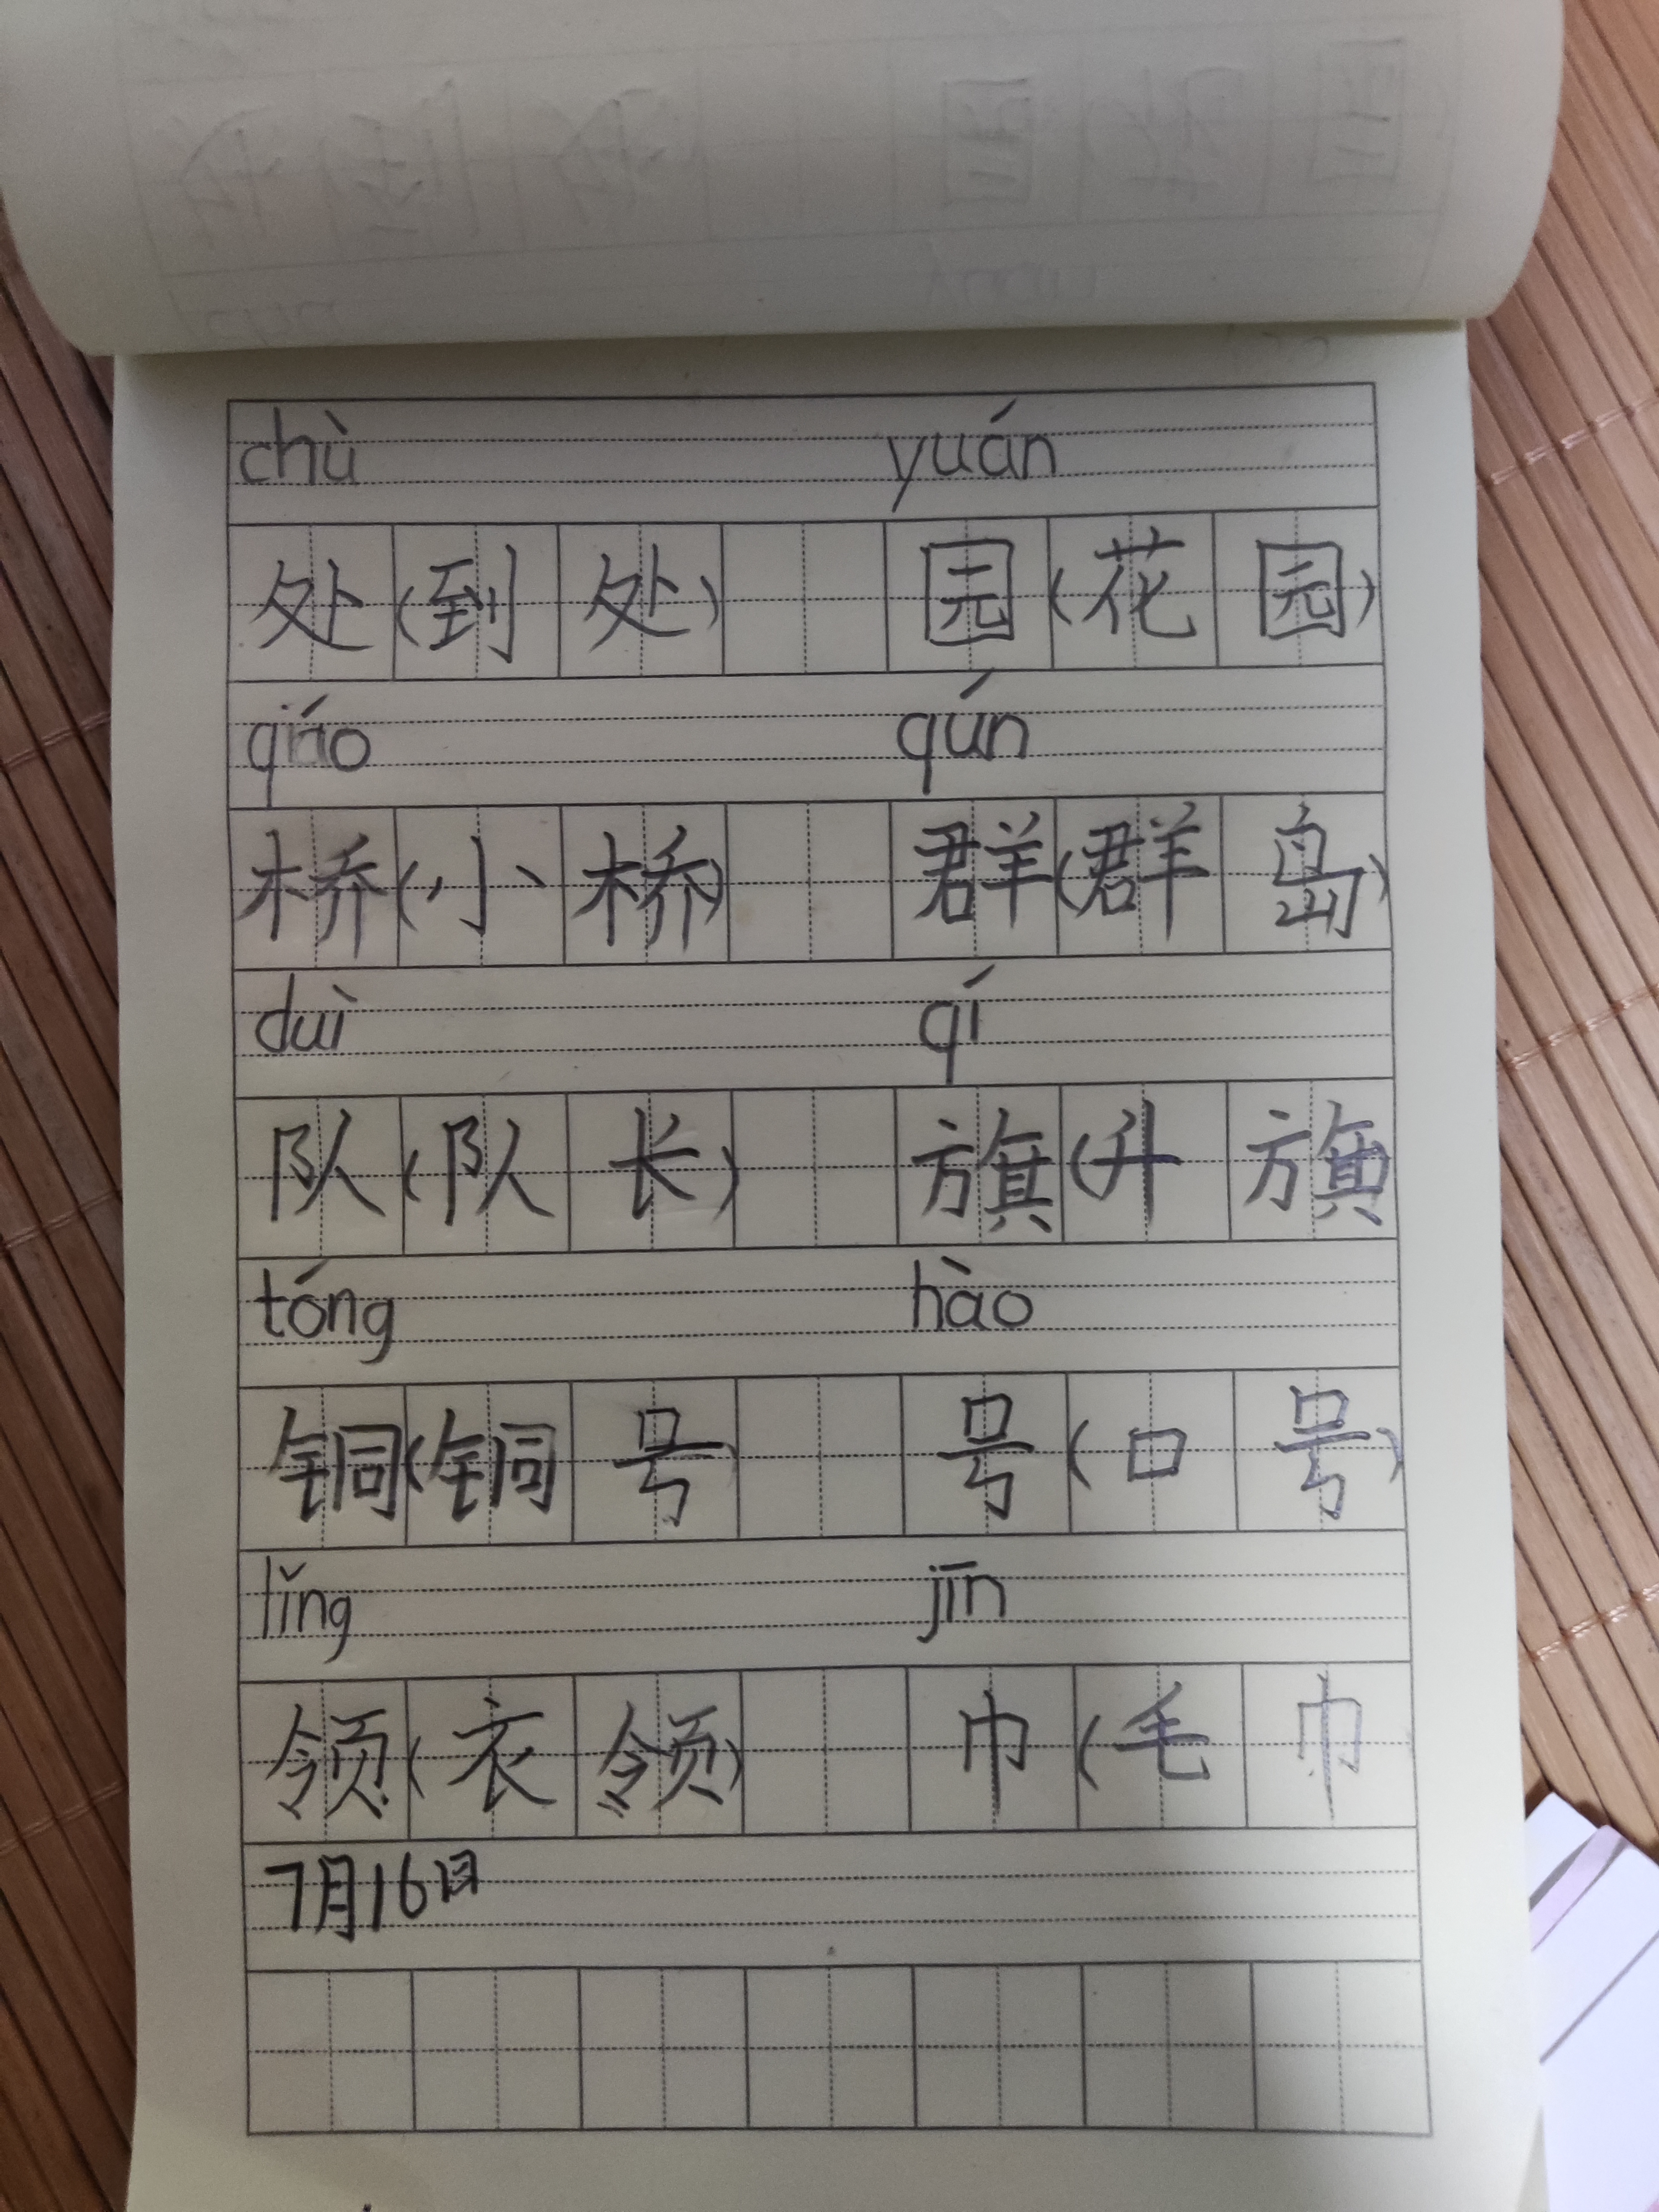 chù yuán
处(到处) 园(花园)
qiáo qún
桥(小桥) 群(群岛)
duì qí
队(队长) 旗(升旗)
tóng hào
铜(铜号) 号(口号)
lǐng jīn
领(衣领) 巾(毛巾)
7月16日